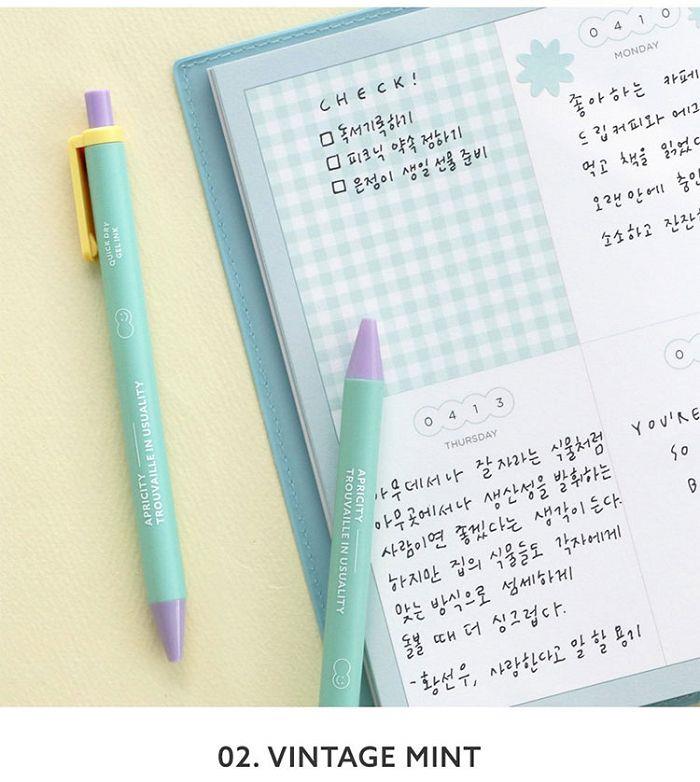 QUICK DRY
GEL INK
APRICITY
TROUVAILLE IN USUALITY
CHECK!
독서기록하기
피크닉 약속 정하기
은정이 생일 선물 준비
0410
MONDAY
좋아하는 카페
드립커피와 에그
먹고 책을 읽었다
오랜만에
소소하고 잔잔
0
YOU'RE
SO
B
0413
THURSDAY
아무데서나 잘 자라는 식물처럼
아무곳에서나 생산성을 발휘하는
사람이면 좋겠다는 생각이 든다.
하지만 집의 식물들도 각자에게
맞는 방식으로 섬세하게
돌볼 때 더 싱그럽다.
-황선우, 사랑한다고 말 할 용기
APRICITY
TROUVAILLE IN USUALITY
02. VINTAGE MINT